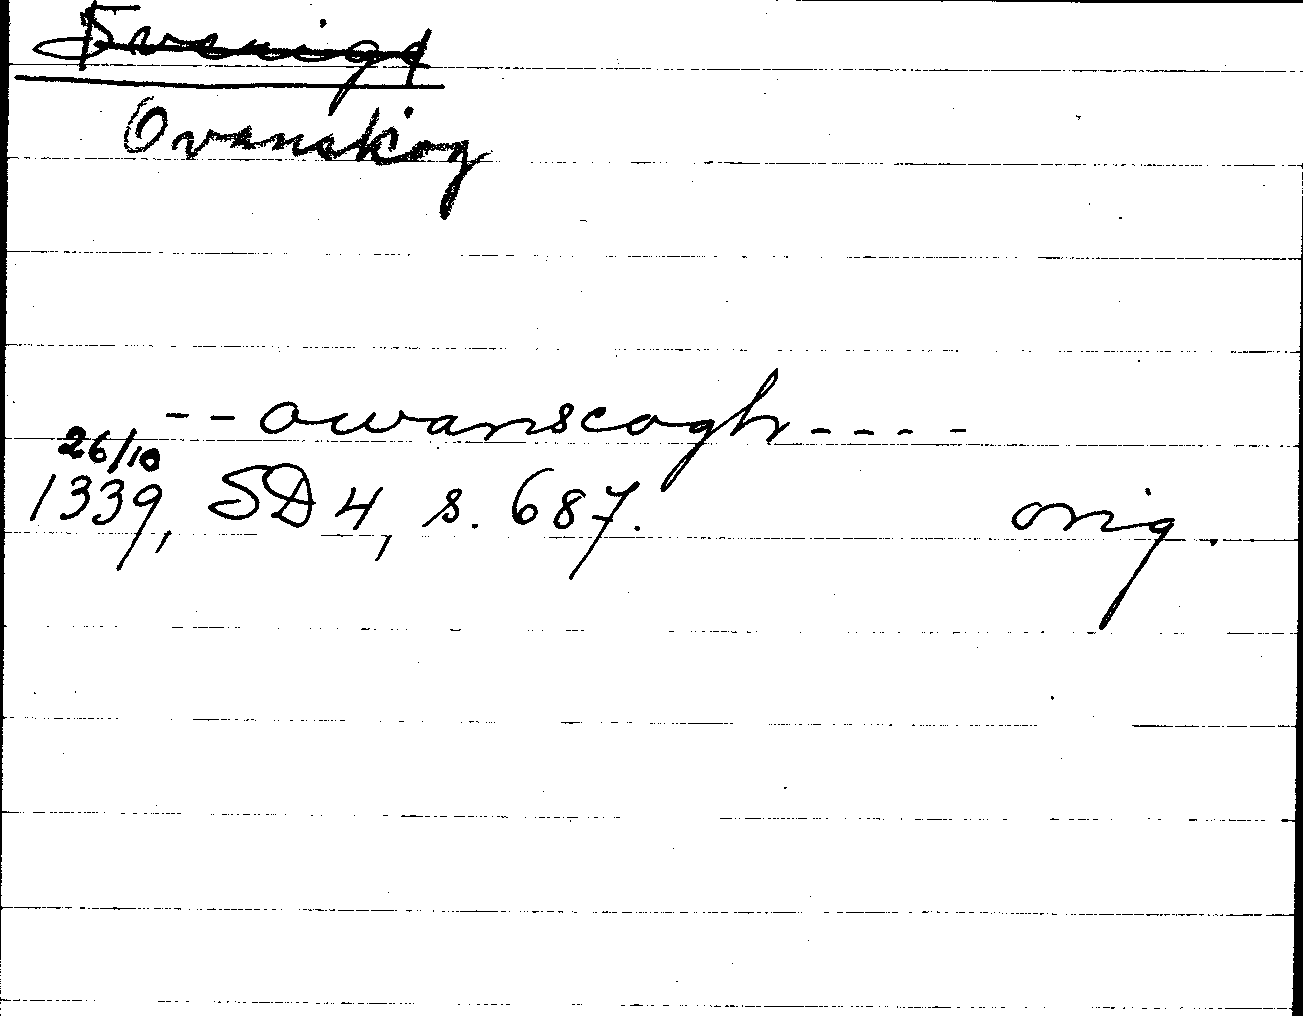 Sverige
Ovanskog
- - owanscogh - - - -
26/10
1339, SD 4, s. 687. orig.